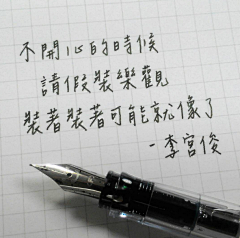 不開心的時候
請假裝樂觀
裝著裝著可能就像了
-李宮俊